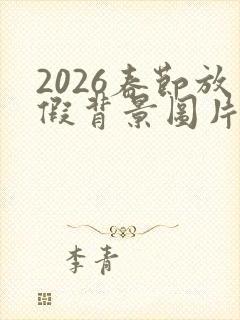 2026春節放
假背景圖片
李青